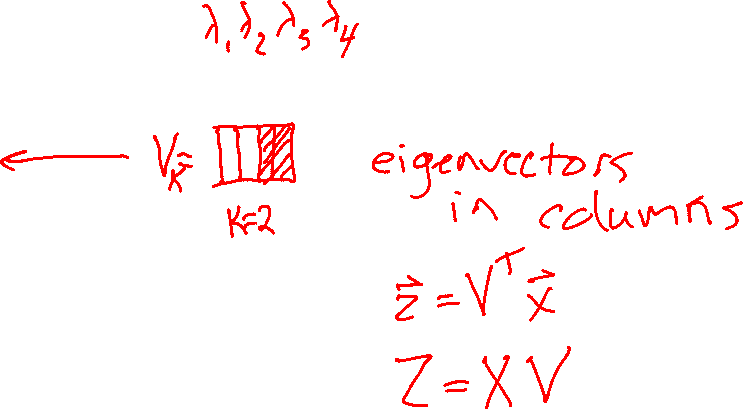 λ₁ λ₂ λ₃ λ₄
V_k =
k=2
eigenvectors
in columns
z⃗ = Vᵀ x⃗
Z = X V